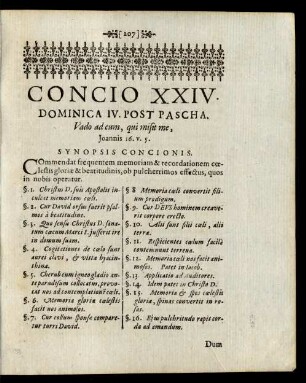 [ 207 ]
CONCIO XXIV.
DOMINICA IV. POST PASCHA.
Vado ad eum, qui misit me,
Joannis 16. v. 5.
SYNOPSIS CONCIONIS.
COmmendat frequentem memoriam & recordationem cœ-
lestis gloriæ & beatitudinis, ob pulcherrimos effectus, quos
in nobis operatur.
§. 1. Christus D. suis Apostolis in-
culcat memoriam cœli.
§. 2. Cur David orsus fuerit psal-
mos à beatitudine.
§. 3. Quo sensu Christus D. sana-
turus cæcum Marci 8. jusserat ire
in domum suam.
§. 4. Cogitationes de cœlo sunt
aurei clavi, & vitta hyacin-
thina.
§. 5. Cherub cum igneo gladio an-
te paradisum collocatus, provo-
cat nos ad contemplationē cœli.
§. 6. Memoria gloriæ cœlestis
facit nos animosos.
§. 7. Cur collum sponsæ compare-
tur turri David.
§. 8 Memoria cœli convertit filium
prodigum.
§. 9. Cur DEUS hominem creave-
rit corpore erecto.
§. 10. Alii sunt filii cœli, alii
terræ.
§. 11. Respicientes cœlum facilè
contemnunt terrena.
§. 12. Memoria cœli nos facit ani-
mosos. Patet in Jacob.
§. 13. Applicatio ad auditores.
§. 14. Idem patet in Christo D.
§. 15. Memoria & spes cœlestis
gloriæ, spinas convertit in ro-
sas.
§. 16. Ejus pulchritudo rapit cor-
da ad amandum.
Dum